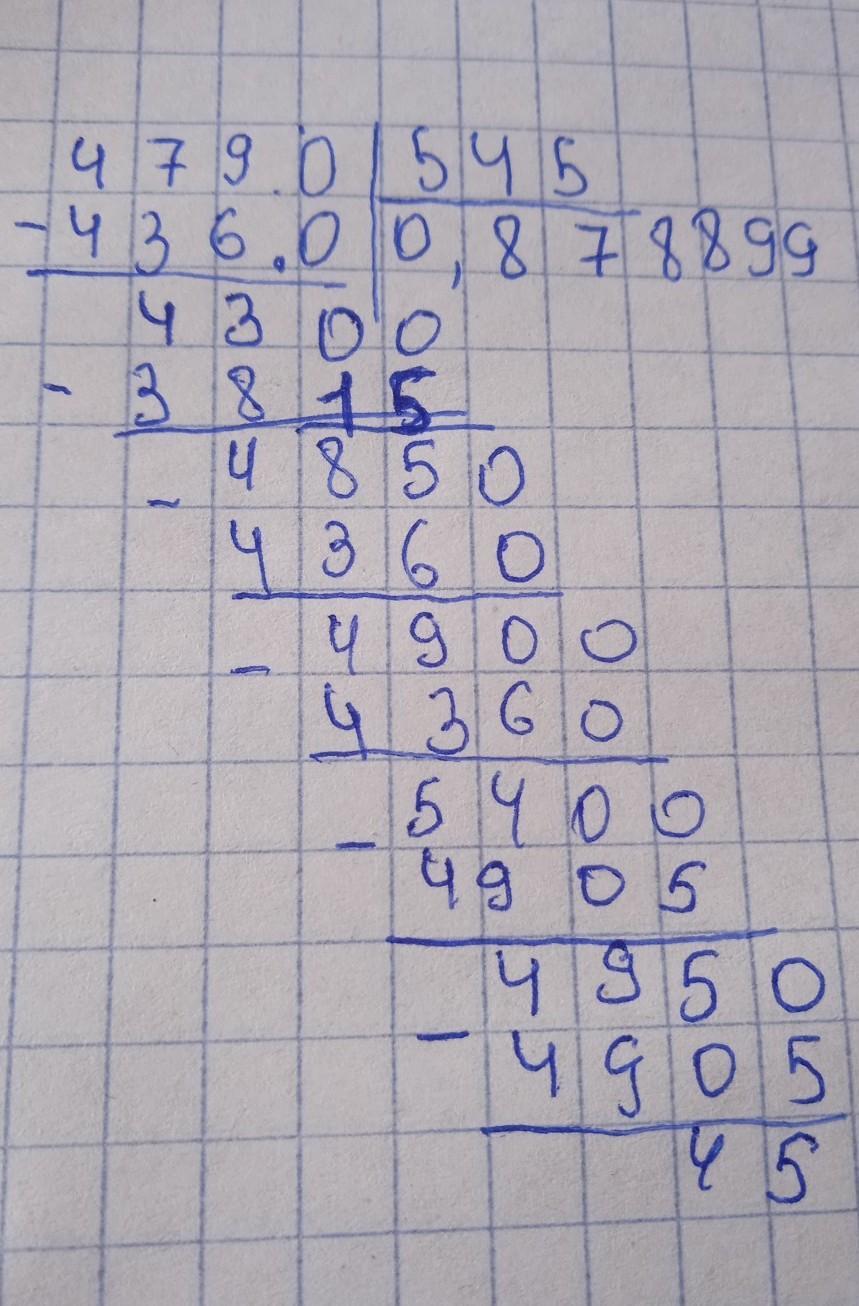 479.0 545
-436.0 0,878899
4300
- 3815
4850
- 4360
4900
- 4360
5400
- 4905
4950
- 4905
45